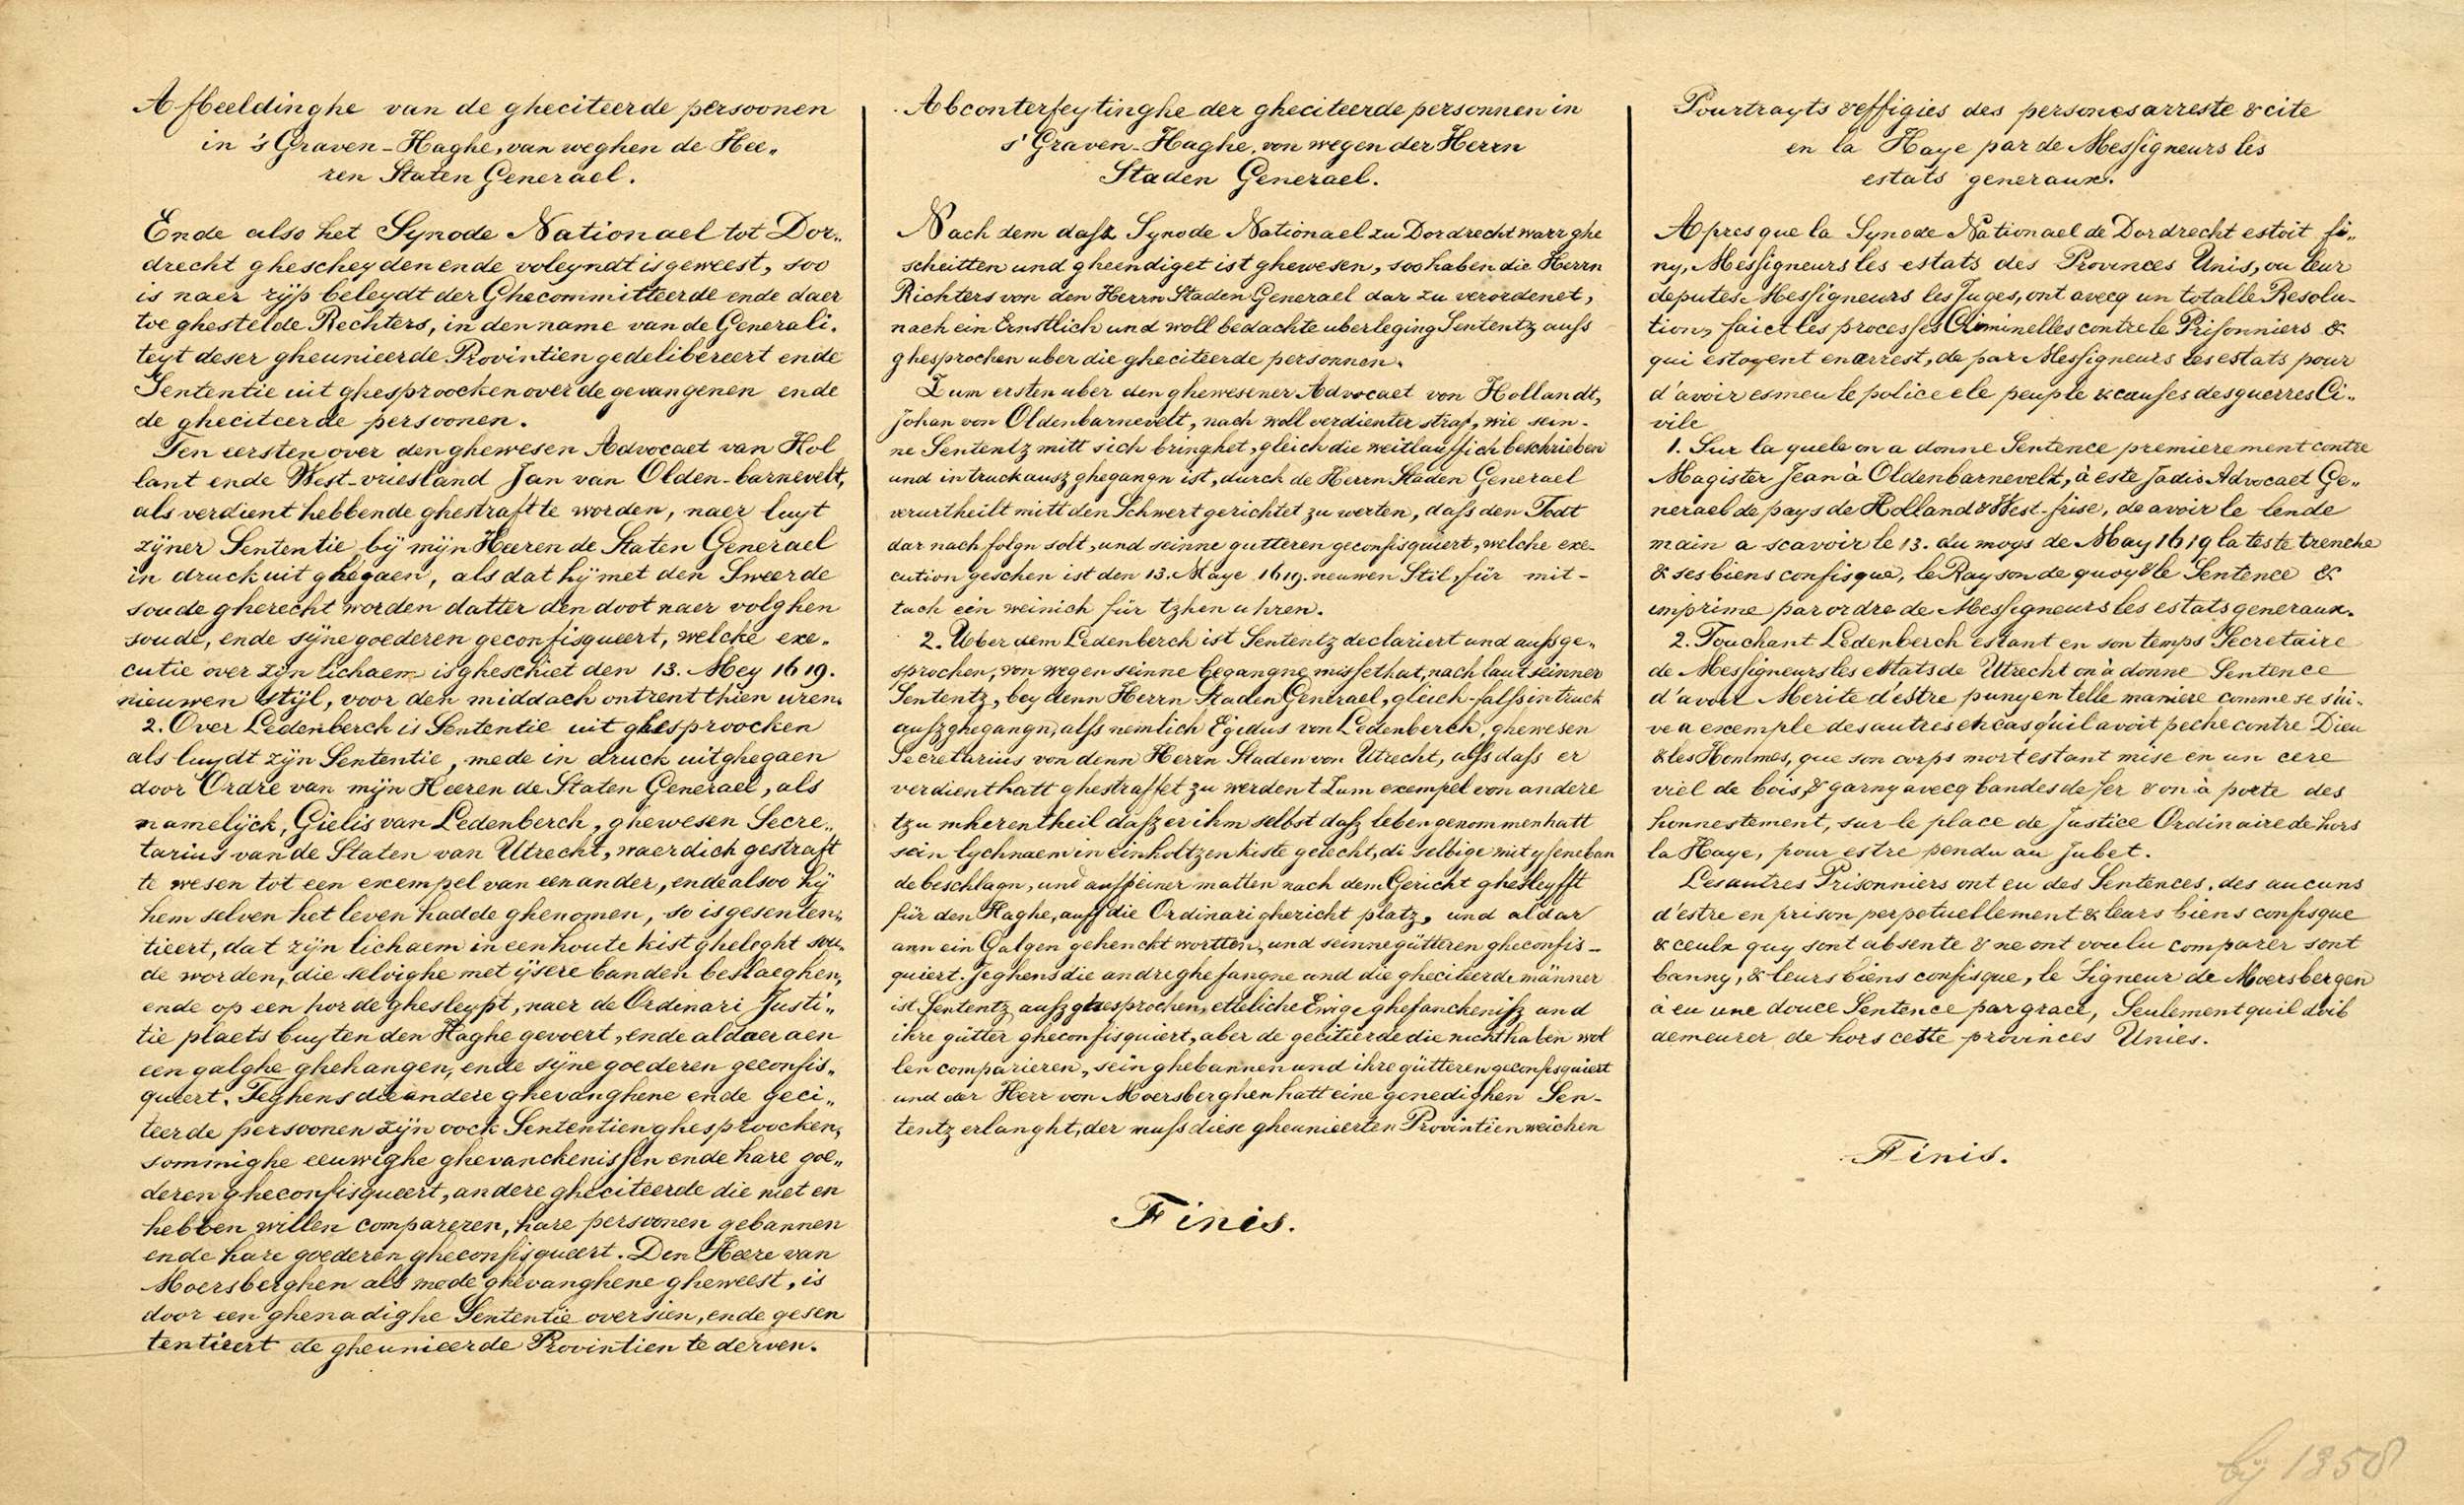 Afbeeldinghe van de gheciteerde persoonen
in 's Graven-Haghe, van weghen de Hee„
ren Staten Generael.
Ende also het Synode Nationael tot Dor„
drecht ghescheyden ende voleyndt is geweest, soo
is naer rijp beleydt der Ghecommitteerde ende daer
toe ghestelde Rechters, in den name van de Generali„
teyt deser gheunieerde Provintien gedelibereert ende
Sententie uit ghesproocken over de gevangenen ende
de gheciteerde persoonen.
Ten eersten over den ghewesen Advocaet van Hol
lant ende West-vriesland Jan van Olden-barnevelt,
als verdient hebbende ghestraft te worden, naer luyt
zijner Sententie bij mijn Heeren de Staten Generael
in druck uit ghegaen, als dat hij met den Sweerde
soude gherecht worden datter den doot naer volghen
soude, ende sijne goederen geconfisqueert, welcke exe„
cutie over zijn lichaem is gheschiet den 13. Mey 1619.
nieuwen Stijl, voor den middach ontrent thien uren.
2. Over Ledenberch is Sententie uit ghesproocken
als luydt zijn Sententie, mede in druck uitghegaen
door Ordre van mijn Heeren de Staten Generael, als
namelijck, Gielis van Ledenberch, ghewesen Secre„
tarius van de Staten van Utrecht, waerdich gestraft
te wesen tot een exempel van een ander, ende alsoo hij
hem selven het leven hadde ghenomen, so is gesenten„
tieert, dat zijn lichaem in een houte kist gheleght sou„
de worden, die selvighe met ijsere banden beslaeghen,
ende op een horde ghesleypt, naer de Ordinari Justi„
tie plaets buyten den Haghe gevoert, ende aldaer aen
een galghe ghehangen, ende sijne goederen geconfis„
queert. Teghens die andere ghevanghene ende geci„
teerde persoonen zijn oock Sententien ghesproocken,
sommighe eeuwighe ghevanckenissen ende hare goe„
deren gheconfisqueert, andere gheciteerde die niet en
hebben willen compareren, hare persoonen gebannen
ende hare goederen gheconfisqueert. Den Heere van
Moersberghen als mede ghevanghene gheweest, is
door een ghenadighe Sententie oversien, ende gesen
tentieert de gheunieerde Provintien te derven.
Abconterfeytinghe der gheciteerde personnen in
s' Graven-Haghe, von wegen der Herrn
Staden Generael.
Nach dem dasz Synode Nationael zu Dordrecht warr ghe
scheitten und gheendiget ist ghewesen, soo haben die Herrn
Richters von den Herrn Staden Generael dar zu verordenet,
nach ein Ernstlich und woll bedachte uberleging Sententz aufs
ghesprochen uber die gheciteerde personnen.
Zum ersten uber den ghewesener Advocaet von Hollandt,
Johan von Oldenbarnevelt, nach woll verdienter straf, wie sein-
ne Sententz mitt sich bringhet, gleich die weitlauffich beschrieben
und in truck ausz ghegangn ist, durch de Herrn Staden Generael
verurtheilt mitt den Schwert gerichtet zu werten, dafs den Todt
dar nach folgn solt, und seinne gutteren geconfisquiert, welche exe-
cution geschen ist den 13. Maye 1619. neuwen Stil, für mit-
tach ein weinich für tzhen uhren.
2. Uber dem Ledenberch ist Sententz declariert und aufsge„
sprochen, von wegen seinne begangne missethat, nach laut seinner
Sententz, bey denn Herrn Staden Generael, gleich-falfs in truck
aufzghegangn, alfs nemlich Egidus von Ledenberch, ghewesen
Secretarius von denn Herrn Staden von Utrecht, alfs dafs er
verdient hatt ghestraffet zu werden t Zum exempel von andere
tzu mheren theil dafz er ihm selbst dafz leben genommen hatt
sein lychnaem in ein holtzen kiste gelecht, di selbige mit yseneban
de beschlagn, und auff einer matten nach dem Gericht ghesleyfft
für den Haghe, auff die Ordinari ghericht platz, und aldar
ann ein Galgen gehenckt wortten, und seinne gütteren gheconfis-
quiert. Jeghens die andre ghefangne und die gheciteerde männer
ist Sententz aufz ghesprochen, etteliche Ewige ghefanchenifz und
ihre gütter gheconfisquiert, aber de geciteerde die nicht haben wol
len comparieren, sein ghebannen und ihre gütteren geconfisquiert
und der Herr von Moersberghen hatt eine genedighen Sen-
tentz erlanght, der mufs diese gheunieerten Provintien weichen
Finis.
Pourtrayts & effigies des persones arreste & cite
en la Haye par de Messigneurs les
estats generaux.
Apres que la Synode Nationael de Dordrecht estoit fi„
ny, Messigneurs les estats des Provinces Unis, ou leur
deputes Messigneurs les Juges, ont avecq un totalle Resolu-
tion, faict les processes Criminelles contre le Prisonniers &
qui estoyent en arrest, de par Messigneurs les estats pour
d'avoir esmeu le police ele peuple & causes des guerres Ci„
vile
1. Sur la quele on a donne Sentence premierement contre
Magister Jean à Oldenbarnevelt, à este Jadis Advocaet Ge„
nerael de pays de Holland & West-frise, de avoir le lende
main a scavoir le 13. du moys de May 1619 la teste trenche
& ses biens confisque, le Rayson de quoy & le Sentence &
imprime par ordre de Messigneurs les estats generaux.
2. Touchant Ledenberch estant en son temps Secretaire
de Messigneurs les estats de Utrecht on à donne Sentence
d'avoir Merite d'estre puny en telle maniere comme se s'ui-
ve a exemple des autres et cas qu'il avoit peche contre Dieu
& les Hommes, que son corps mort estant mise en un cere
viel de bois, & garny avecq bandes de fer & on à porte des
honnestement, sur le place de Justice Ordinaire de hors
la Haye, pour estre pendu au Jubet.
Les autres Prisonniers ont eu des Sentences, des aucuns
d'estre en prison perpetuellement & leurs biens confisque
& ceulx quy sont absente & ne ont voulu comparer sont
banny, & leurs biens confisque, le Signeur de Moersbergen
à eu une douce Sentence par grace, Seulement quil doib
demeurer de hors ceste provinces Unies.
Finis.
bij 1358